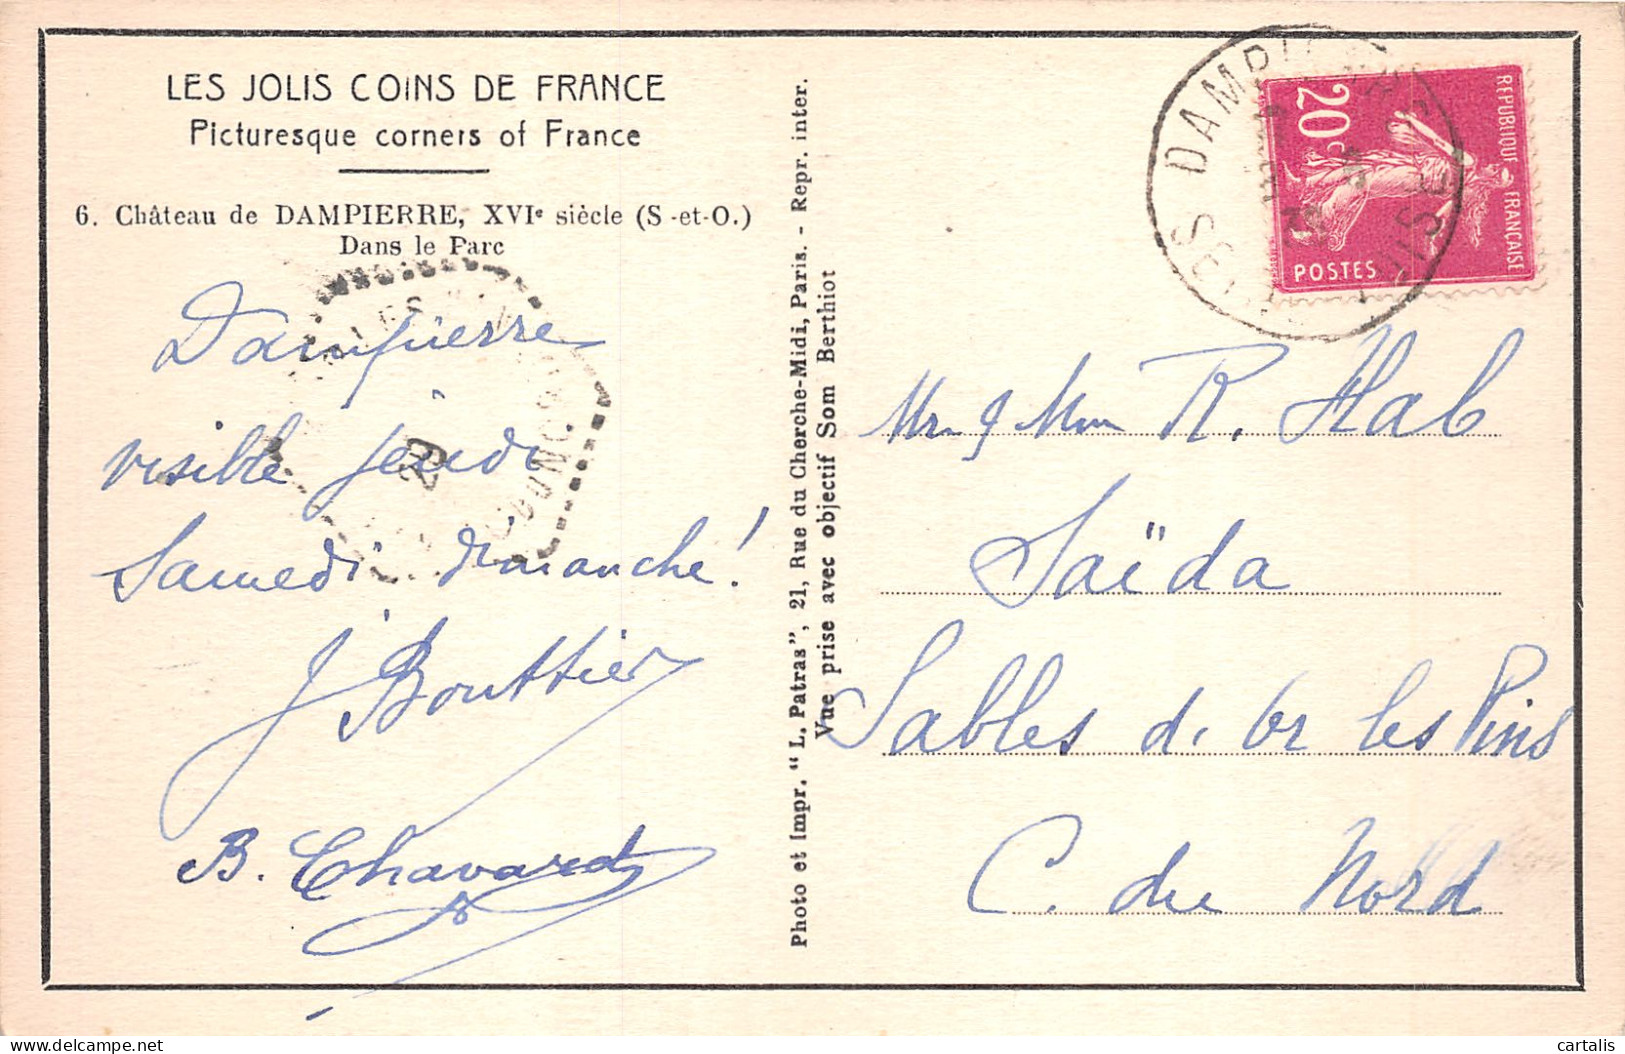 LES JOLIS COINS DE FRANCE
Picturesque corners of France
6. Château de DAMPIERRE, XVIe siècle (S-et-O.)
Dans le Parc
Dampierre
visible jeudi
Samedi dimanche !
J Bouttier
B. Chavard
Photo et Impr. “ L. Patras”, 21, Rue du Cherche-Midi, Paris. - Repr. inter.
Vue prise avec objectif Som Berthiot
20c
REPUBLIQUE FRANÇAISE
POSTES
DAMPIERRE
OISE
20
Mr & Mme R. Hab
Saïda
Sables d. Or les Pins
C. du Nord
cartalis.net
delcampe.net